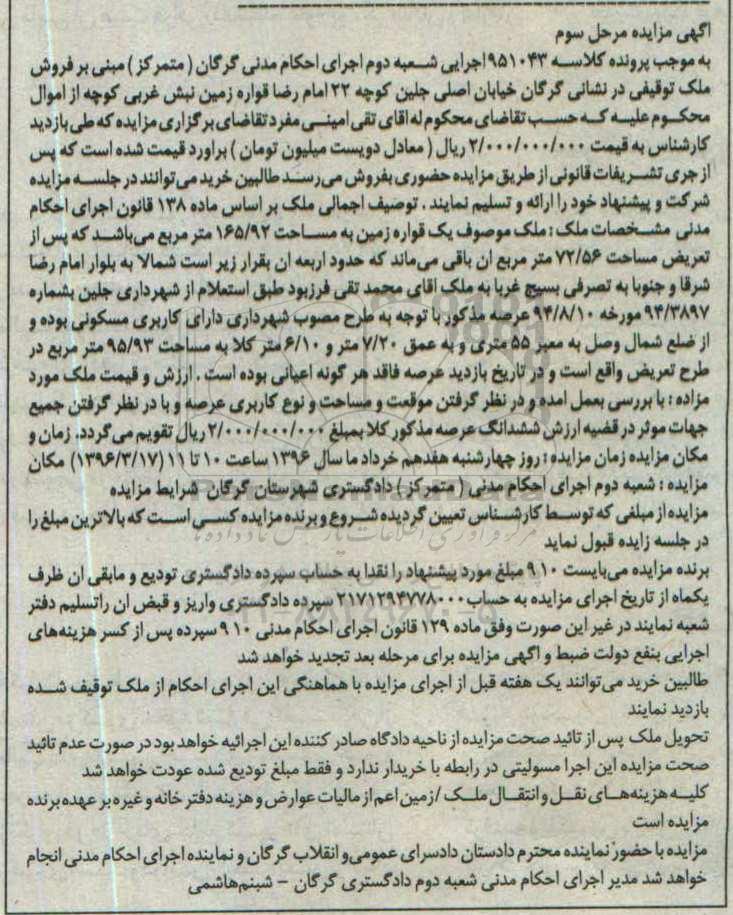 آگهی مزایده مرحل سوم
به موجب پرونده کلاسه ۹۵۱۰۴۳ اجرایی شعبه دوم اجرای احکام مدنی گرگان ( متمرکز ) مبنی بر فروش
ملک توقیفی در نشانی گرگان خیابان اصلی جلین کوچه ۲۲ امام رضا قواره زمین نبش غربی کوچه از اموال
محکوم علیه که حسب تقاضای محکوم له اقای تقی امینی مفرد تقاضای برگزاری مزایده که طی بازدید
کارشناس به قیمت ۲/۰۰۰/۰۰۰/۰۰۰ ریال ( معادل دویست میلیون تومان ) براورد قیمت شده است که پس
از جری تشریفات قانونی از طریق مزایده حضوری بفروش می‌رسد طالبین خرید می‌توانند در جلسه مزایده
شرکت و پیشنهاد خود را ارائه و تسلیم نمایند . توصیف اجمالی ملک بر اساس ماده ۱۳۸ قانون اجرای احکام
مدنی مشخصات ملک : ملک موصوف یک قواره زمین به مساحت ۱۶۵/۹۲ متر مربع می‌باشد که پس از
تعریض مساحت ۷۲/۵۶ متر مربع ان باقی می‌ماند که حدود اربعه ان بقرار زیر است شمالا به بلوار امام رضا
شرقا و جنوبا به تصرفی بسیج غربا به ملک اقای محمد تقی فرزبود طبق استعلام از شهرداری جلین بشماره
۹۴/۳۸۹۷ مورخه ۹۴/۸/۱۰ عرصه مذکور با توجه به طرح مصوب شهرداری دارای کاربری مسکونی بوده و
از ضلع شمال وصل به معبر ۵۵ متری و به عمق ۷/۲۰ متر و ۶/۱۰ متر کلا به مساحت ۹۵/۹۳ متر مربع در
طرح تعریض واقع است و در تاریخ بازدید عرصه فاقد هر گونه اعیانی بوده است . ارزش و قیمت ملک مورد
مزاده : با بررسی بعمل امده و در نظر گرفتن موقعت و مساحت و نوع کاربری عرصه و با در نظر گرفتن جمیع
جهات موثر در قضیه ارزش ششدانگ عرصه مذکور کلا بمبلغ ۲/۰۰۰/۰۰۰/۰۰۰ ریال تقویم می‌گردد. زمان و
مکان مزایده زمان مزایده : روز چهارشنبه هفدهم خرداد ما سال ۱۳۹۶ ساعت ۱۰ تا ۱۱ (۱۳۹۶/۳/۱۷) مکان
مزایده : شعبه دوم اجرای احکام مدنی ( متمرکز ) دادگستری شهرستان گرگان شرایط مزایده
مزایده از مبلغی که توسط کارشناس تعیین گردیده شروع و برنده مزایده کسی است که بالاترین مبلغ را
در جلسه زایده قبول نماید
برنده مزایده می‌بایست ۱۰ ۹ مبلغ مورد پیشنهاد را نقدا به حساب سپرده دادگستری تودیع و مابقی ان ظرف
یکماه از تاریخ اجرای مزایده به حساب ۲۱۷۱۲۹۴۷۷۸۰۰۰ سپرده دادگستری واریز و قبض ان راتسلیم دفتر
شعبه نمایند در غیر این صورت وفق ماده ۱۲۹ قانون اجرای احکام مدنی ۱۰ ۹ سپرده پس از کسر هزینه‌های
اجرایی بنفع دولت ضبط و اگهی مزایده برای مرحله بعد تجدید خواهد شد
طالبین خرید می‌توانند یک هفته قبل از اجرای مزایده با هماهنگی این اجرای احکام از ملک توقیف شده
بازدید نمایند
تحویل ملک پس از تائید صحت مزایده از ناحیه دادگاه صادر کننده این اجرائیه خواهد بود در صورت عدم تائید
صحت مزایده این اجرا مسولیتی در رابطه با خریدار ندارد و فقط مبلغ تودیع شده عودت خواهد شد
کلیه هزینه‌های نقل و انتقال ملک /زمین اعم از مالیات عوارض و هزینه دفتر خانه و غیره بر عهده برنده
مزایده است
مزایده با حضور نماینده محترم دادستان دادسرای عمومی‌و انقلاب گرگان و نماینده اجرای احکام مدنی انجام
خواهد شد مدیر اجرای احکام مدنی شعبه دوم دادگستری گرگان – شبنم‌هاشمی